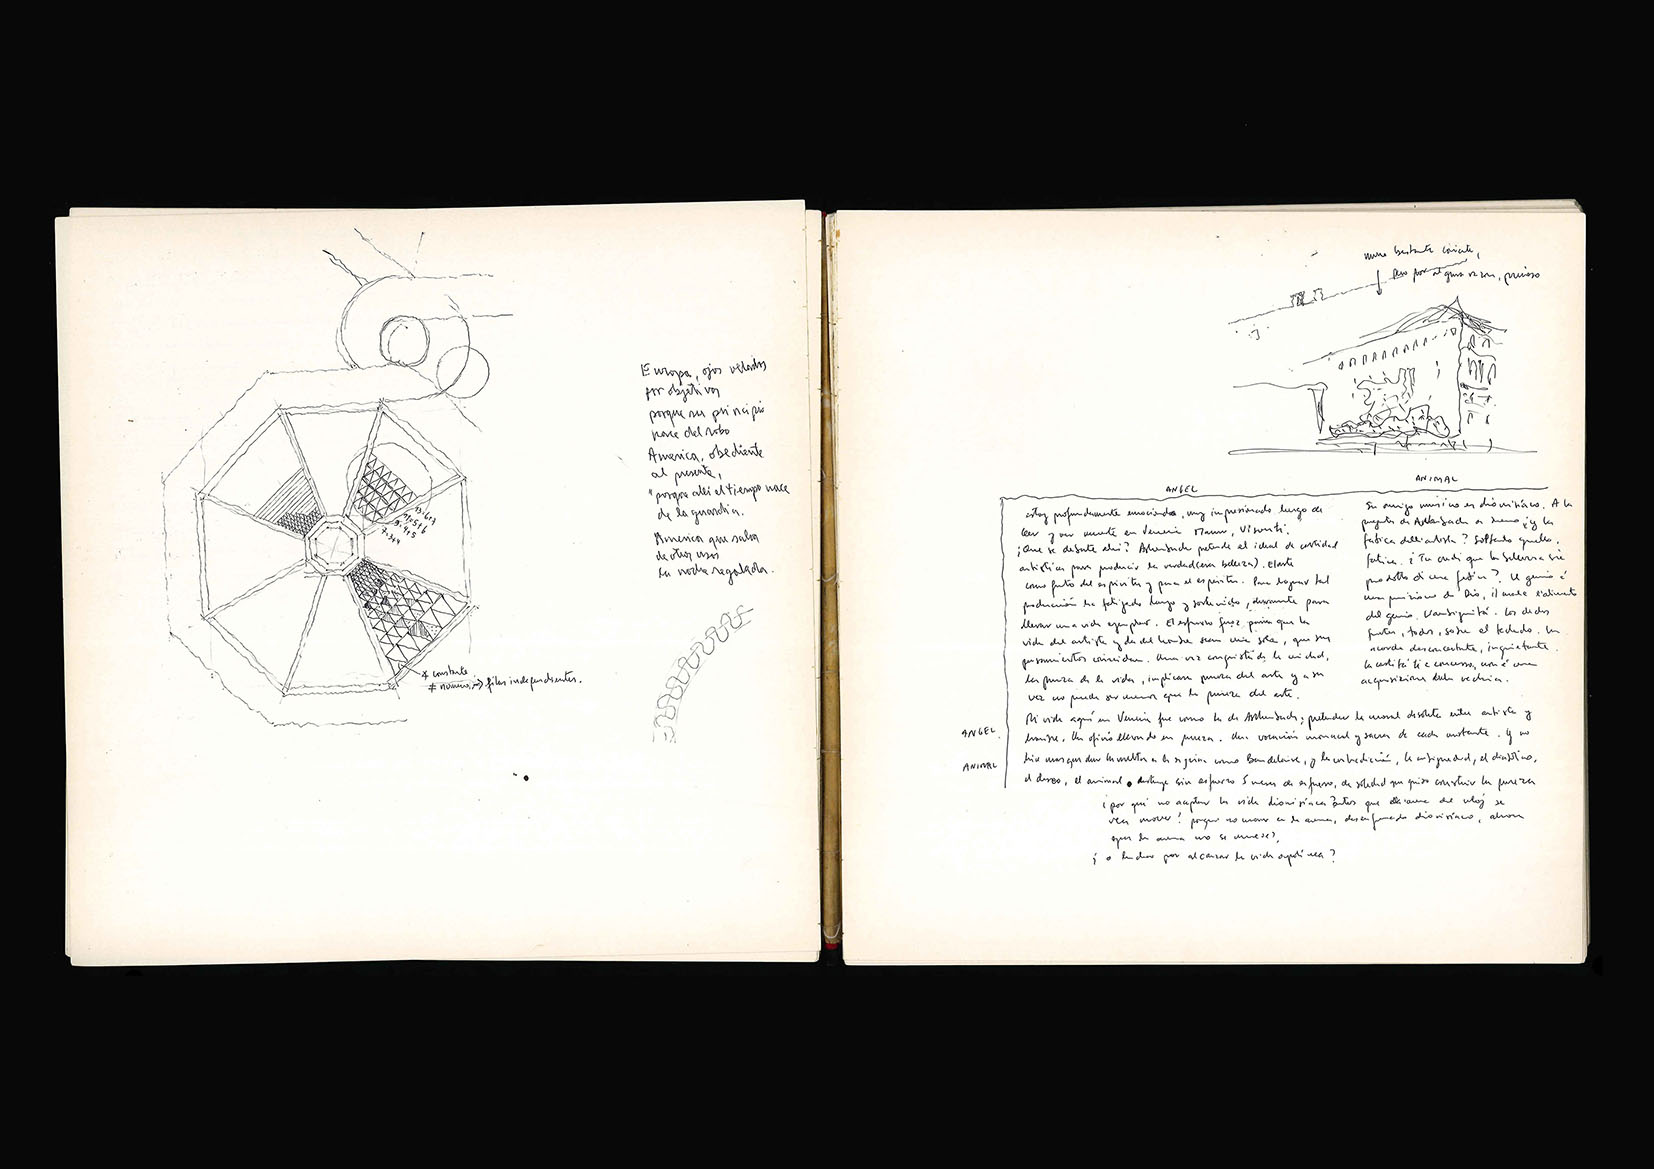 Europa, ojos velados
por objetivos
porque su principio
nace del robo
America, obediente
al presente,
"porque alli el tiempo nace
de la guardia.
America que salva
de otros usos
la noche regalada.
13.617
11.516
9.4.5
7.344
constante
≠ numero, → filas independientes.
muro bastante
pero por alguna razon, precioso
ANGEL
ANIMAL
estoy profundamente emocionado, muy impresionado luego de
leer y ver muerte en Venecia Mann, Visconti.
¿Que se debate ahi? Ashenbach pretende el ideal de castidad
artistica para producir la verdad (esa belleza). El arte
como fruto del espiritu y para el espiritu. Para lograr tal
producción ha fatigado largo y sostenido, durante para
llevar una vida ejemplar. El esfuerzo feroz para que la
vida del artista y la del hombre sean una sola, que sus
pensamientos coincidan. Una vez conquistada la unidad,
la pureza de la vida, implicara pureza del arte y a su
vez no puede ser menos que la pureza del arte.
Su amigo musico es dionisíaco. A la
pregunta de Ashenbach y la
fatica dell'artista? Soltando
fatica. ¿Tu credi que la belleza sia
prodotto di una fatica? Il genio é
una de Dio, il male l'alimento
del genio. L'ambiguitá. Los dedos
juntos, todos, sobre el teclado. Un
acorde desconcertante, inquietante.
la castitá, non é una
acquisizione della vechiaia.
ANGEL
Mi vida aqui en Venecia fue como la de Ashenbach; pretender la moral absoluta entre artista y
hombre. Un oficio llevando en pureza. Una vocación monacal y sacra de cada instante. Y no
ANIMAL
hice mas que dar la vuelta a la como Baudelaire, y la contradicción, la ambigüedad, el dionisíaco,
el deseo, el animal destruye sin esfuerzo 5 meses de esfuerzo, de soledad que quiso construir la pureza
¿por qué no aceptar la vida dionisíaca antes que el arena del reloj se
vea mover? porque no morir en la arena, desenfrenado dionisíaco, ahora
que la arena no se mueve?,
¿o luchar por alcanzar la vida apolínea?